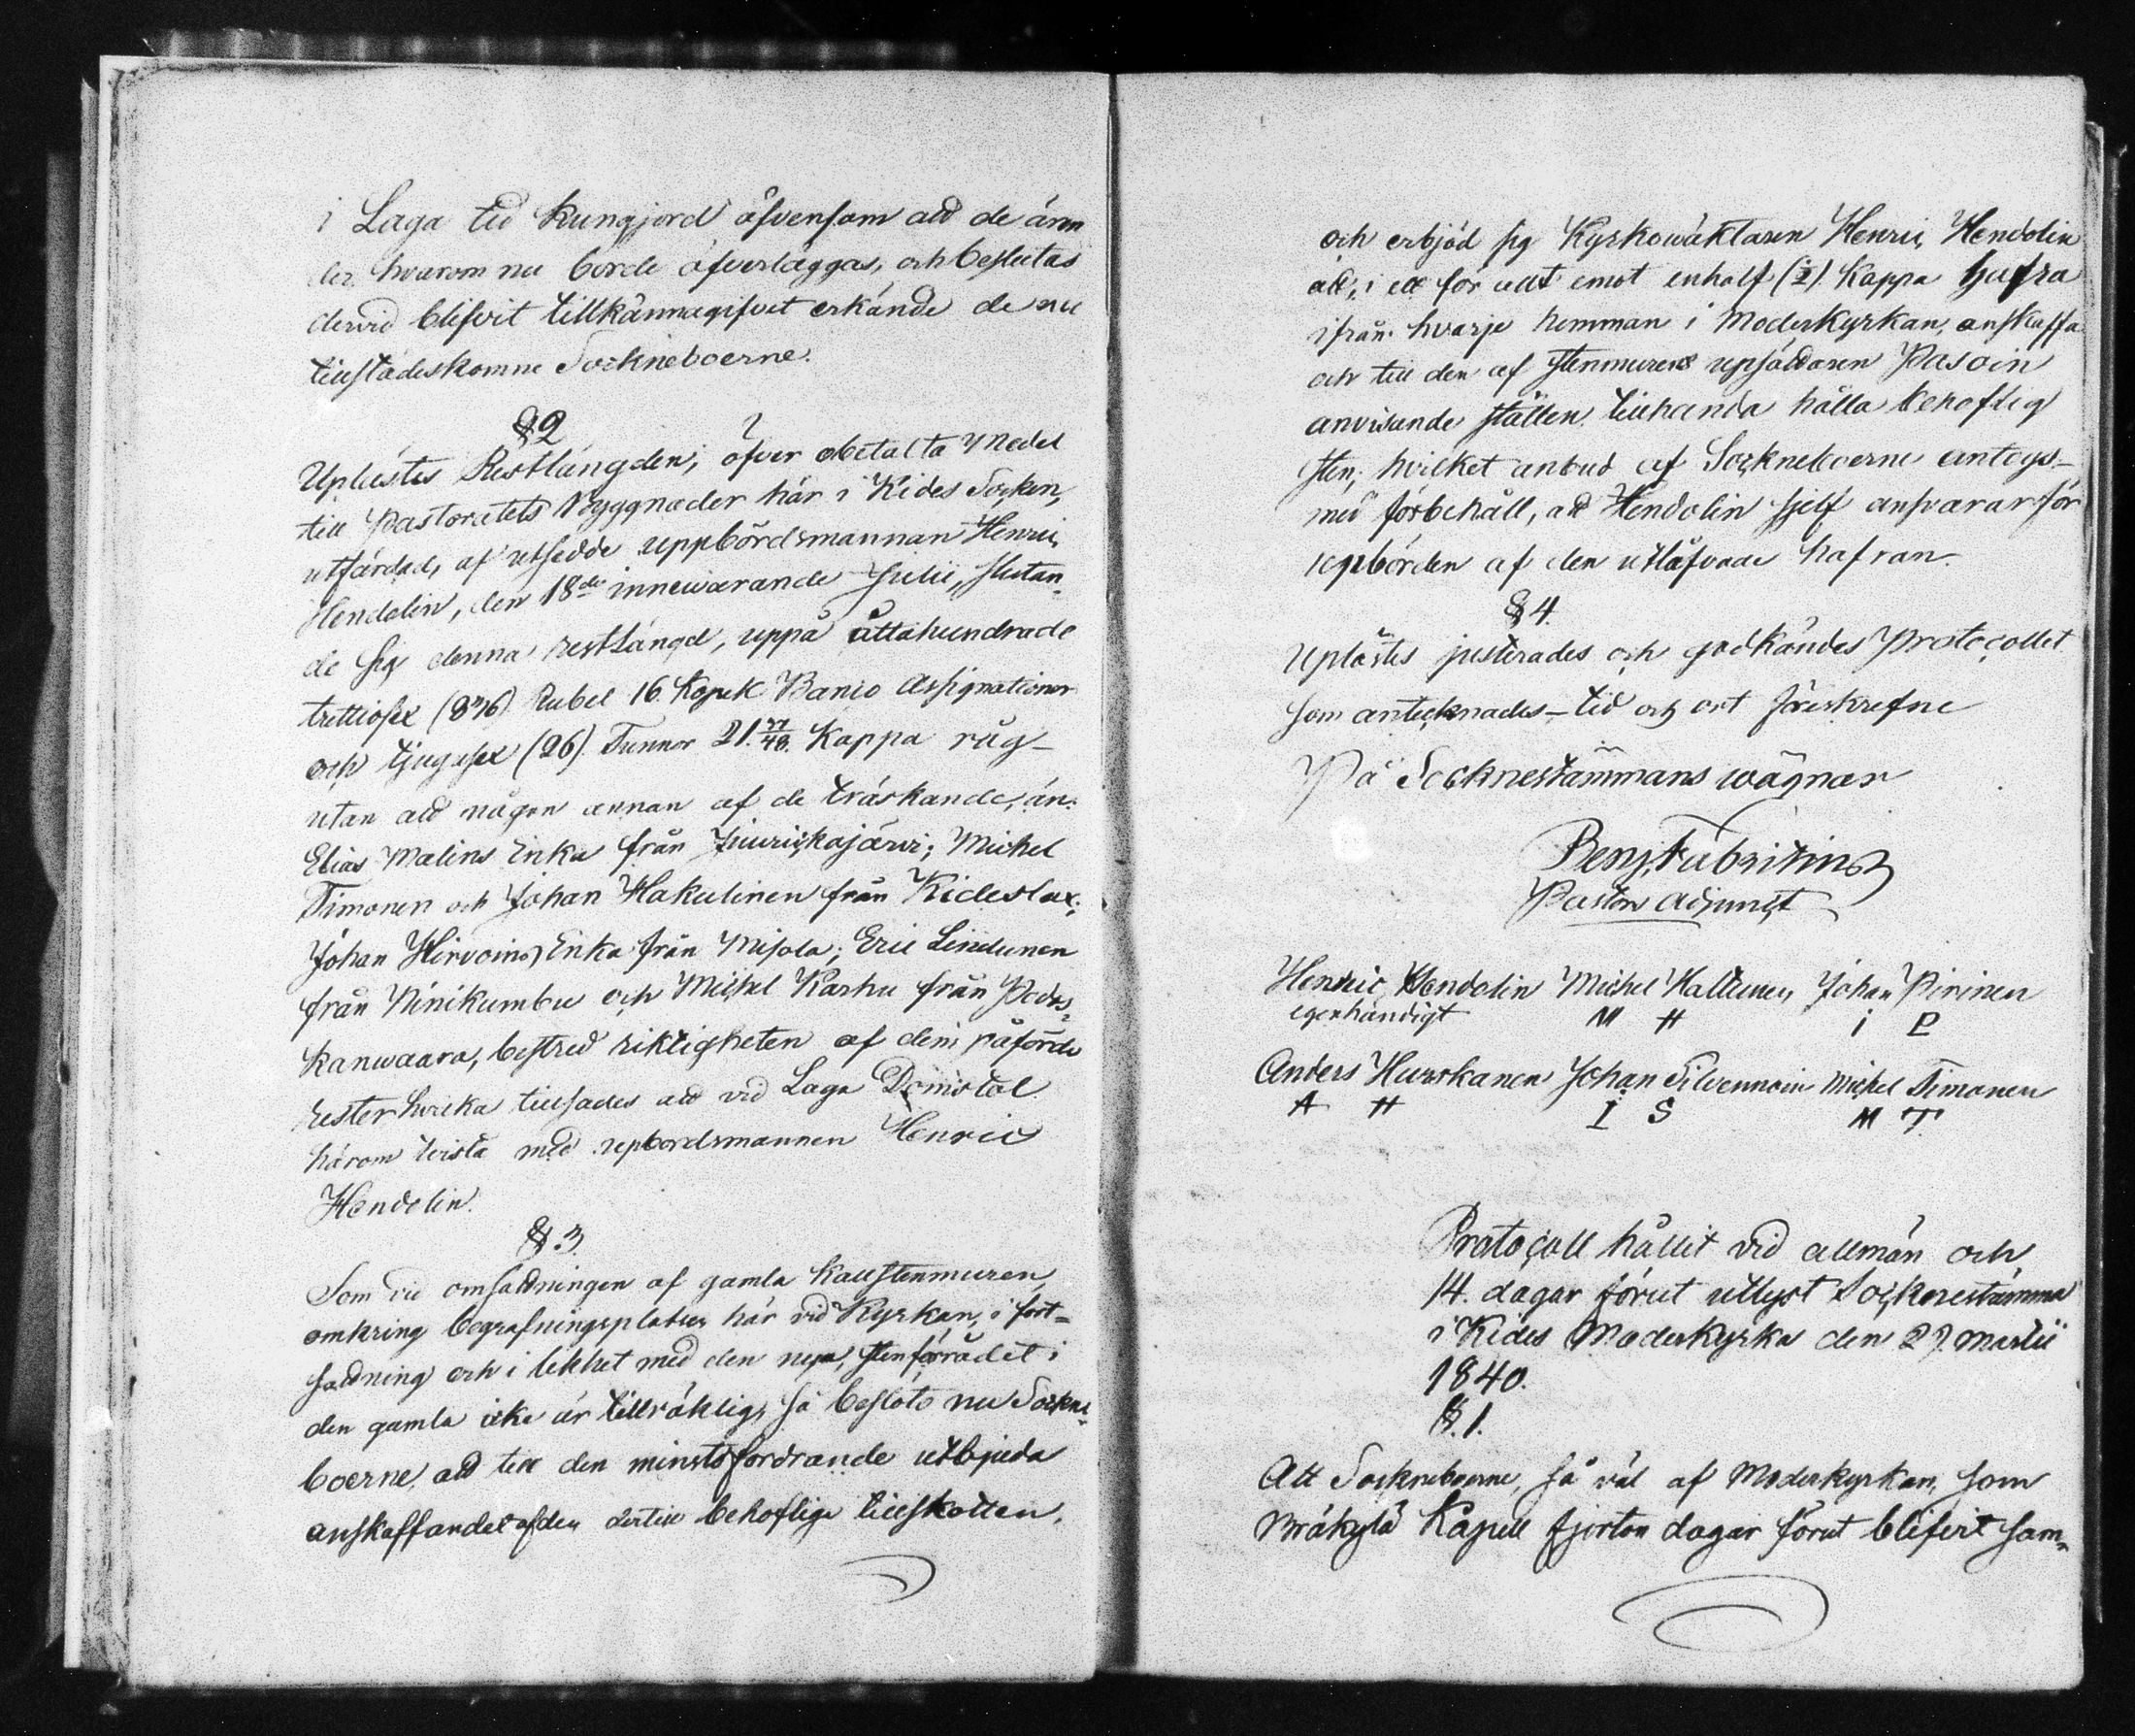 i Laga tid kungjord äfvensom att de ären
der hvarom nu borde öfverläggas, och beslutas
dervid blifvit tillkännagifvit erkände de nu
tillstädeskomne Sockneboerne.
§ 2
Uplästes Restlängden, öfver obetalta Medel
till Pastoratets Byggnader här i Kides Socken,
utfärdad, af utsedde uppbördsmannan Henric
Hendolin, den 18de innewarande Julii, slutan-
de sig denna restlängd, uppå åttahundrade
trettiosex (836) Rubel 16. Kopek Banco Assignationer
och tjugusex (26) Tunnor 21. 27/48. Kappa råg-
utan att någon annan af de träskande, än
Elias Malins Enka från Juurikkajärvi; Michel
Timonen och Johan Hakulinen från Kideslax;
Johan Hirvoins Enka från Misola; Eric Lindunen
från Ninikumbu och Michel Karhu från Potos-
kanwaara, bestred riktigheten af dem påförde
rester hvilka tillsades att vid Laga Domstol
härom tvista med upbordsmannen Henric
Hendolin.
§ 3
Som vid omsättningen af gamla Kallstenmuren
omkring begrafningsplatsen här vid Kyrkan, i fort-
sättning och i likhet med den nya, stenförrådet i
den gamla icke är tillräklig, så beslöto nu Sockne-
boerne, att till den minstfordrande utbjuda
anskaffandet af den dertill behöflige tillskotten,
och erbjöd sig Kyrkowäktaren Henric Hendolin
att, i ett för allt emot enhalf (½) Kappa hafra
ifrån hvarje hemman i Moderkyrkan, anskaffa
och till den af stenmurens upsättaren Pasoin
anvisande ställen tillhanda hålla behöflig
sten, hvilket anbud af Sockneboerne antogs-
med förbehåll, att Hendolin sjelf ansvarar för
uppbörden af den utlåfvade hafran.
§ 4.
Uplästes justerades och godkändes Protocollet
som antecknades- tid och ort föreskrefne
På Socknestämmans wägnar
Benj. Fabritius
Pastors Adjunct
Henric Hendolin Michel Hattunen Johan Pirinen
egenhändigt M H I P
Anders Hurskanen Johan Silvennoin Michel Timonen
A H I S M T
Protocoll hållit vid allmän och
14. dagar förut utlyst Socknestämma
i Kides Moderkyrka den 29 Martii
1840.
§. 1.
Att Sockneboerne, så väl af Moderkyrkan, som
Bräkylä Kapell fjorton dagar förut blifvit sam-